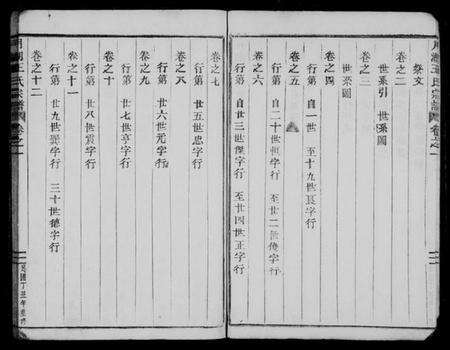 祭文
卷之二
世系引 世系圖
卷之三
世系圖
卷之四
行第 自一世 至十九世良字行
卷之五
行第 自二十世恒字行 至廿二世傳字行
卷之六
行第 自廿三世傑字行 至廿四世正字行
卷之七
行第 廿五世忠字行
卷之八
行第 廿六世元字行
卷之九
行第 廿七世亨字行
卷之十
行第 廿八世賓字行
卷之十一
行第 廿九世 字行 三十世德字行
卷之十二
湖王氏宗譜 卷之一
民國丁丑年重修